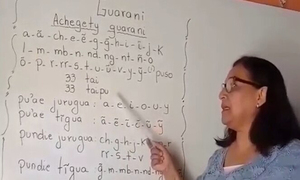 Guarani
Achegety guarani
a-ã-ch-e-ẽ-g-g̃-h-i-ĩ-j-k
l-m-mb-n-nd-ng-nt-ñ-o
õ-p-r-rr-s-t-u-ũ-v-y-ỹ-(') puso
33 tai
33 taipu
pu'ae jurugua: a-e-i-o-u-y
pu'ae tĩgua: ã-ẽ-ĩ-õ-ũ-ỹ
pundie jurugua: ch-g-h-j-k
rr-s-t-v
pundie tĩgua: g̃-m-mb-n-nd